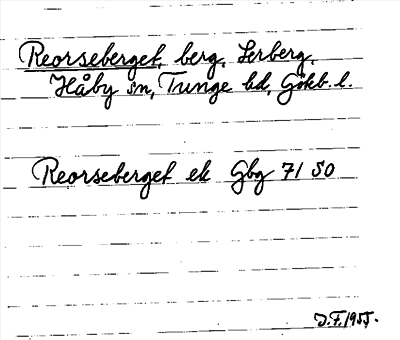 Reorseberget, berg, Lerberg,
Håby sn, Tunge hd, Gökb. l.
Reorseberget ek Gbg 71 50
J.F. 1955.